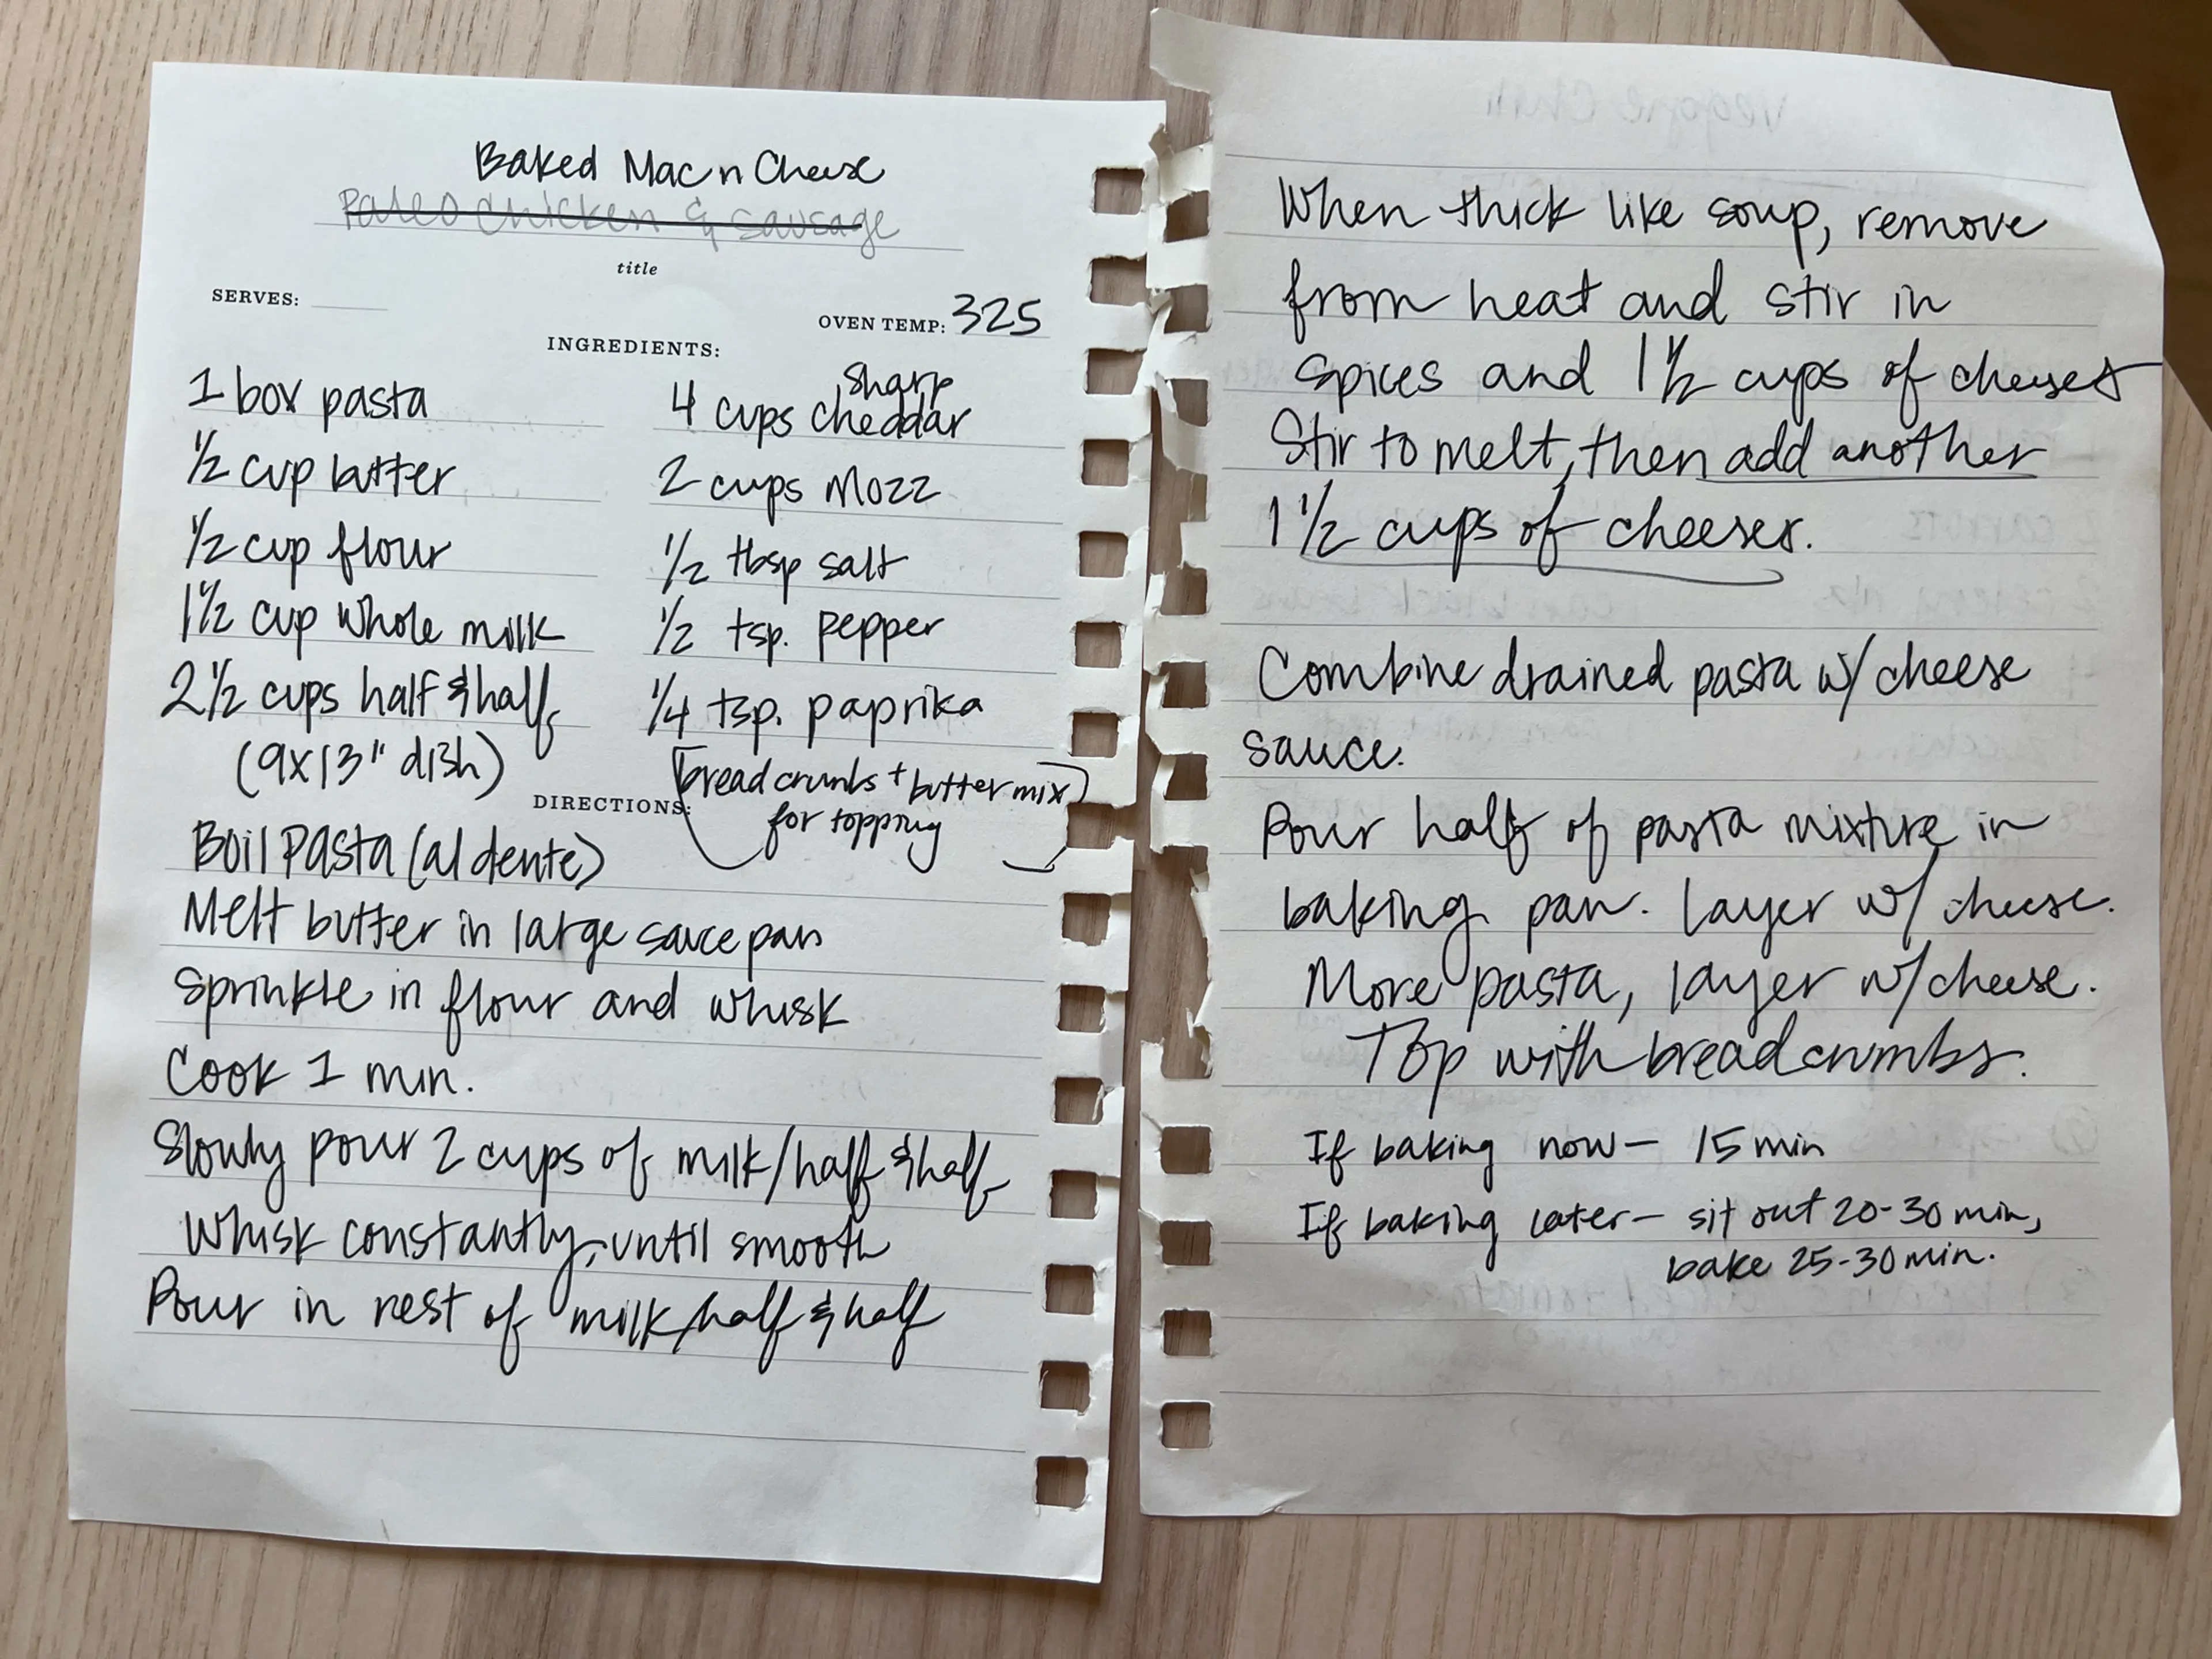 Baked Mac n Cheese
Paleo Chicken & Sausage
title
SERVES:
OVEN TEMP: 325
INGREDIENTS:
1 box pasta
1/2 cup butter
1/2 cup flour
1 1/2 cup whole milk
2 1/2 cups half & half
(9x13" dish)
sharp
4 cups cheddar
2 cups mozz
1/2 tbsp salt
1/2 tsp. pepper
1/4 tsp. paprika
bread crumbs + butter mix
for topping
DIRECTIONS:
Boil Pasta (al dente)
Melt butter in large sauce pan
Sprinkle in flour and whisk
Cook 1 min.
Slowly pour 2 cups of milk/half & half
Whisk constantly, until smooth
Pour in rest of milk/half & half
When thick like soup, remove
from heat and stir in
spices and 1 1/2 cups of cheeses
Stir to melt, then add another
1 1/2 cups of cheeses.
Combine drained pasta w/ cheese
sauce.
Pour half of pasta mixture in
baking pan. layer w/ cheese.
More pasta, layer w/ cheese.
Top with bread crumbs.
If baking now - 15 min
If baking later - sit out 20-30 min,
bake 25-30 min.